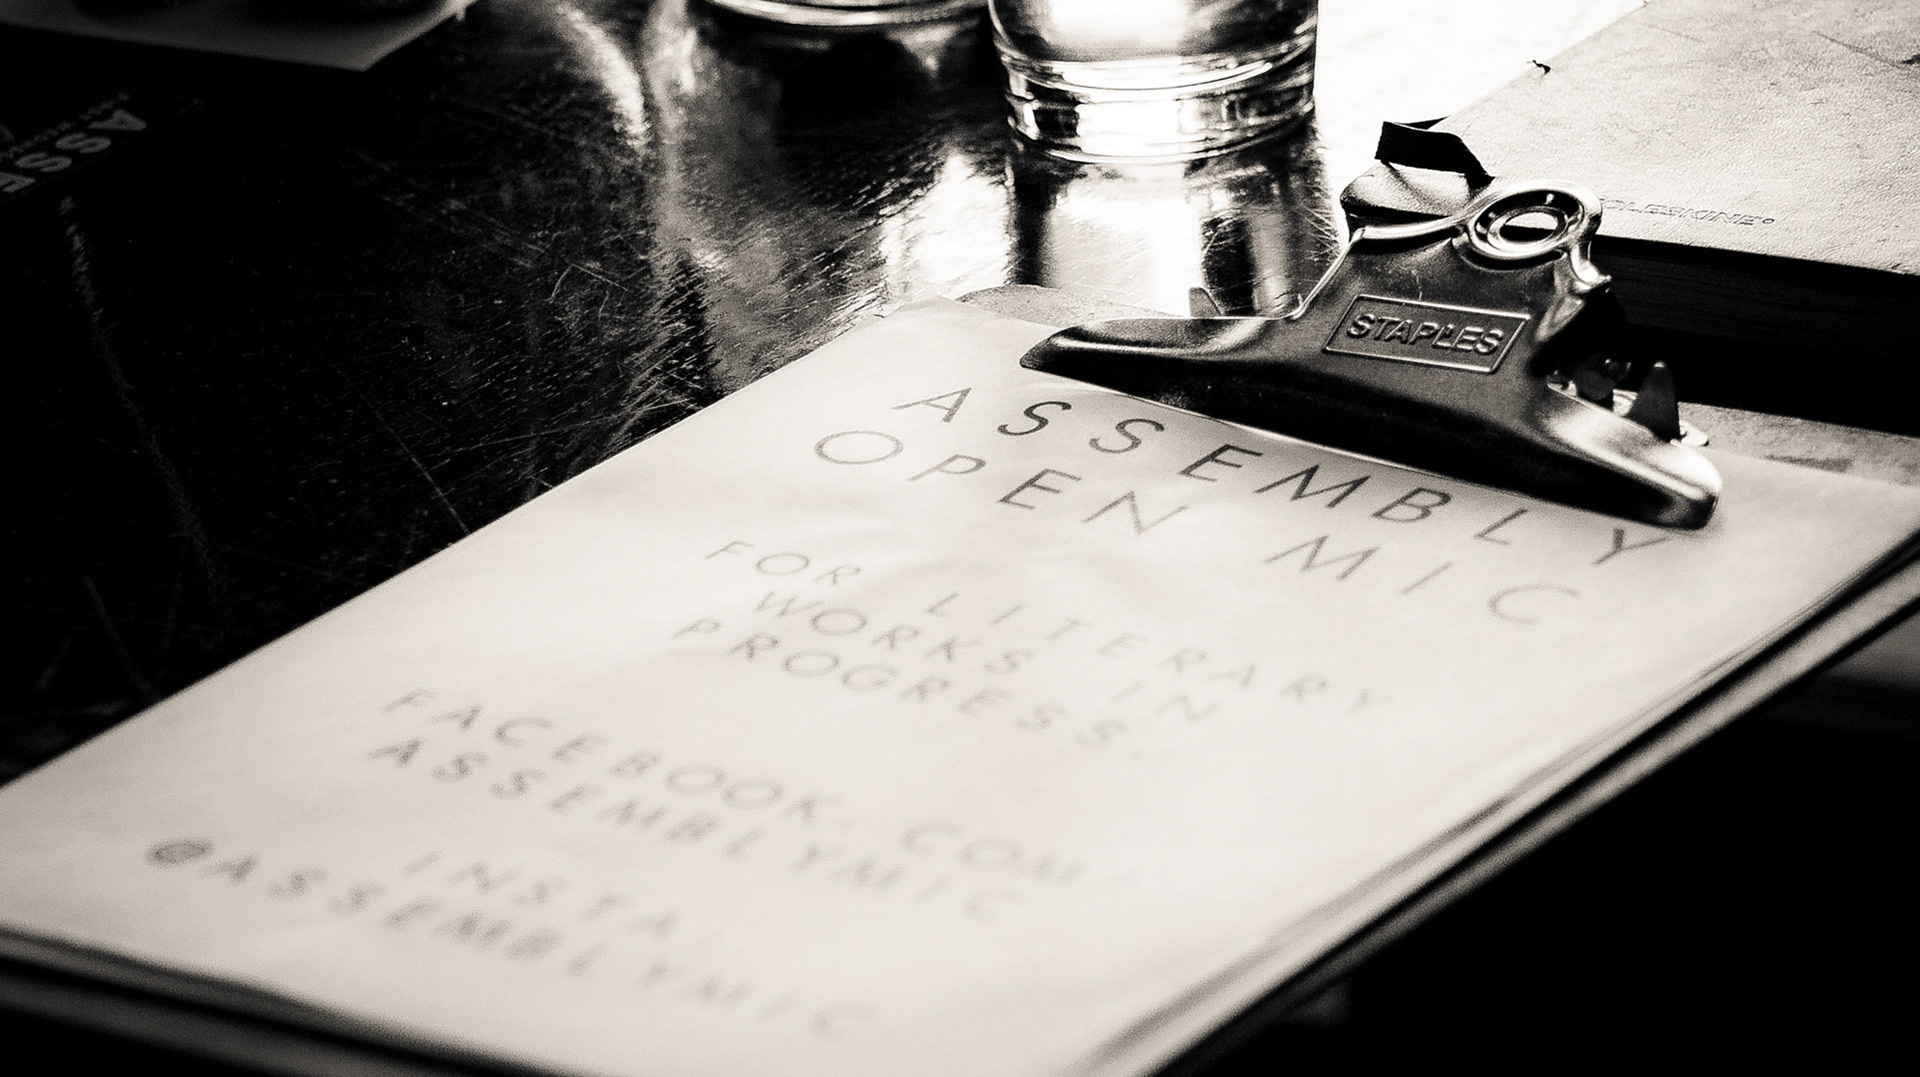 ASSE
STAPLES
OLESKINE®
ASSEMBLY
OPEN MIC
FOR LITERARY
WORKS IN
PROGRESS.
FACEBOOK.COM/
ASSEMBLYMIC
INSTA
@ASSEMBLYMIC